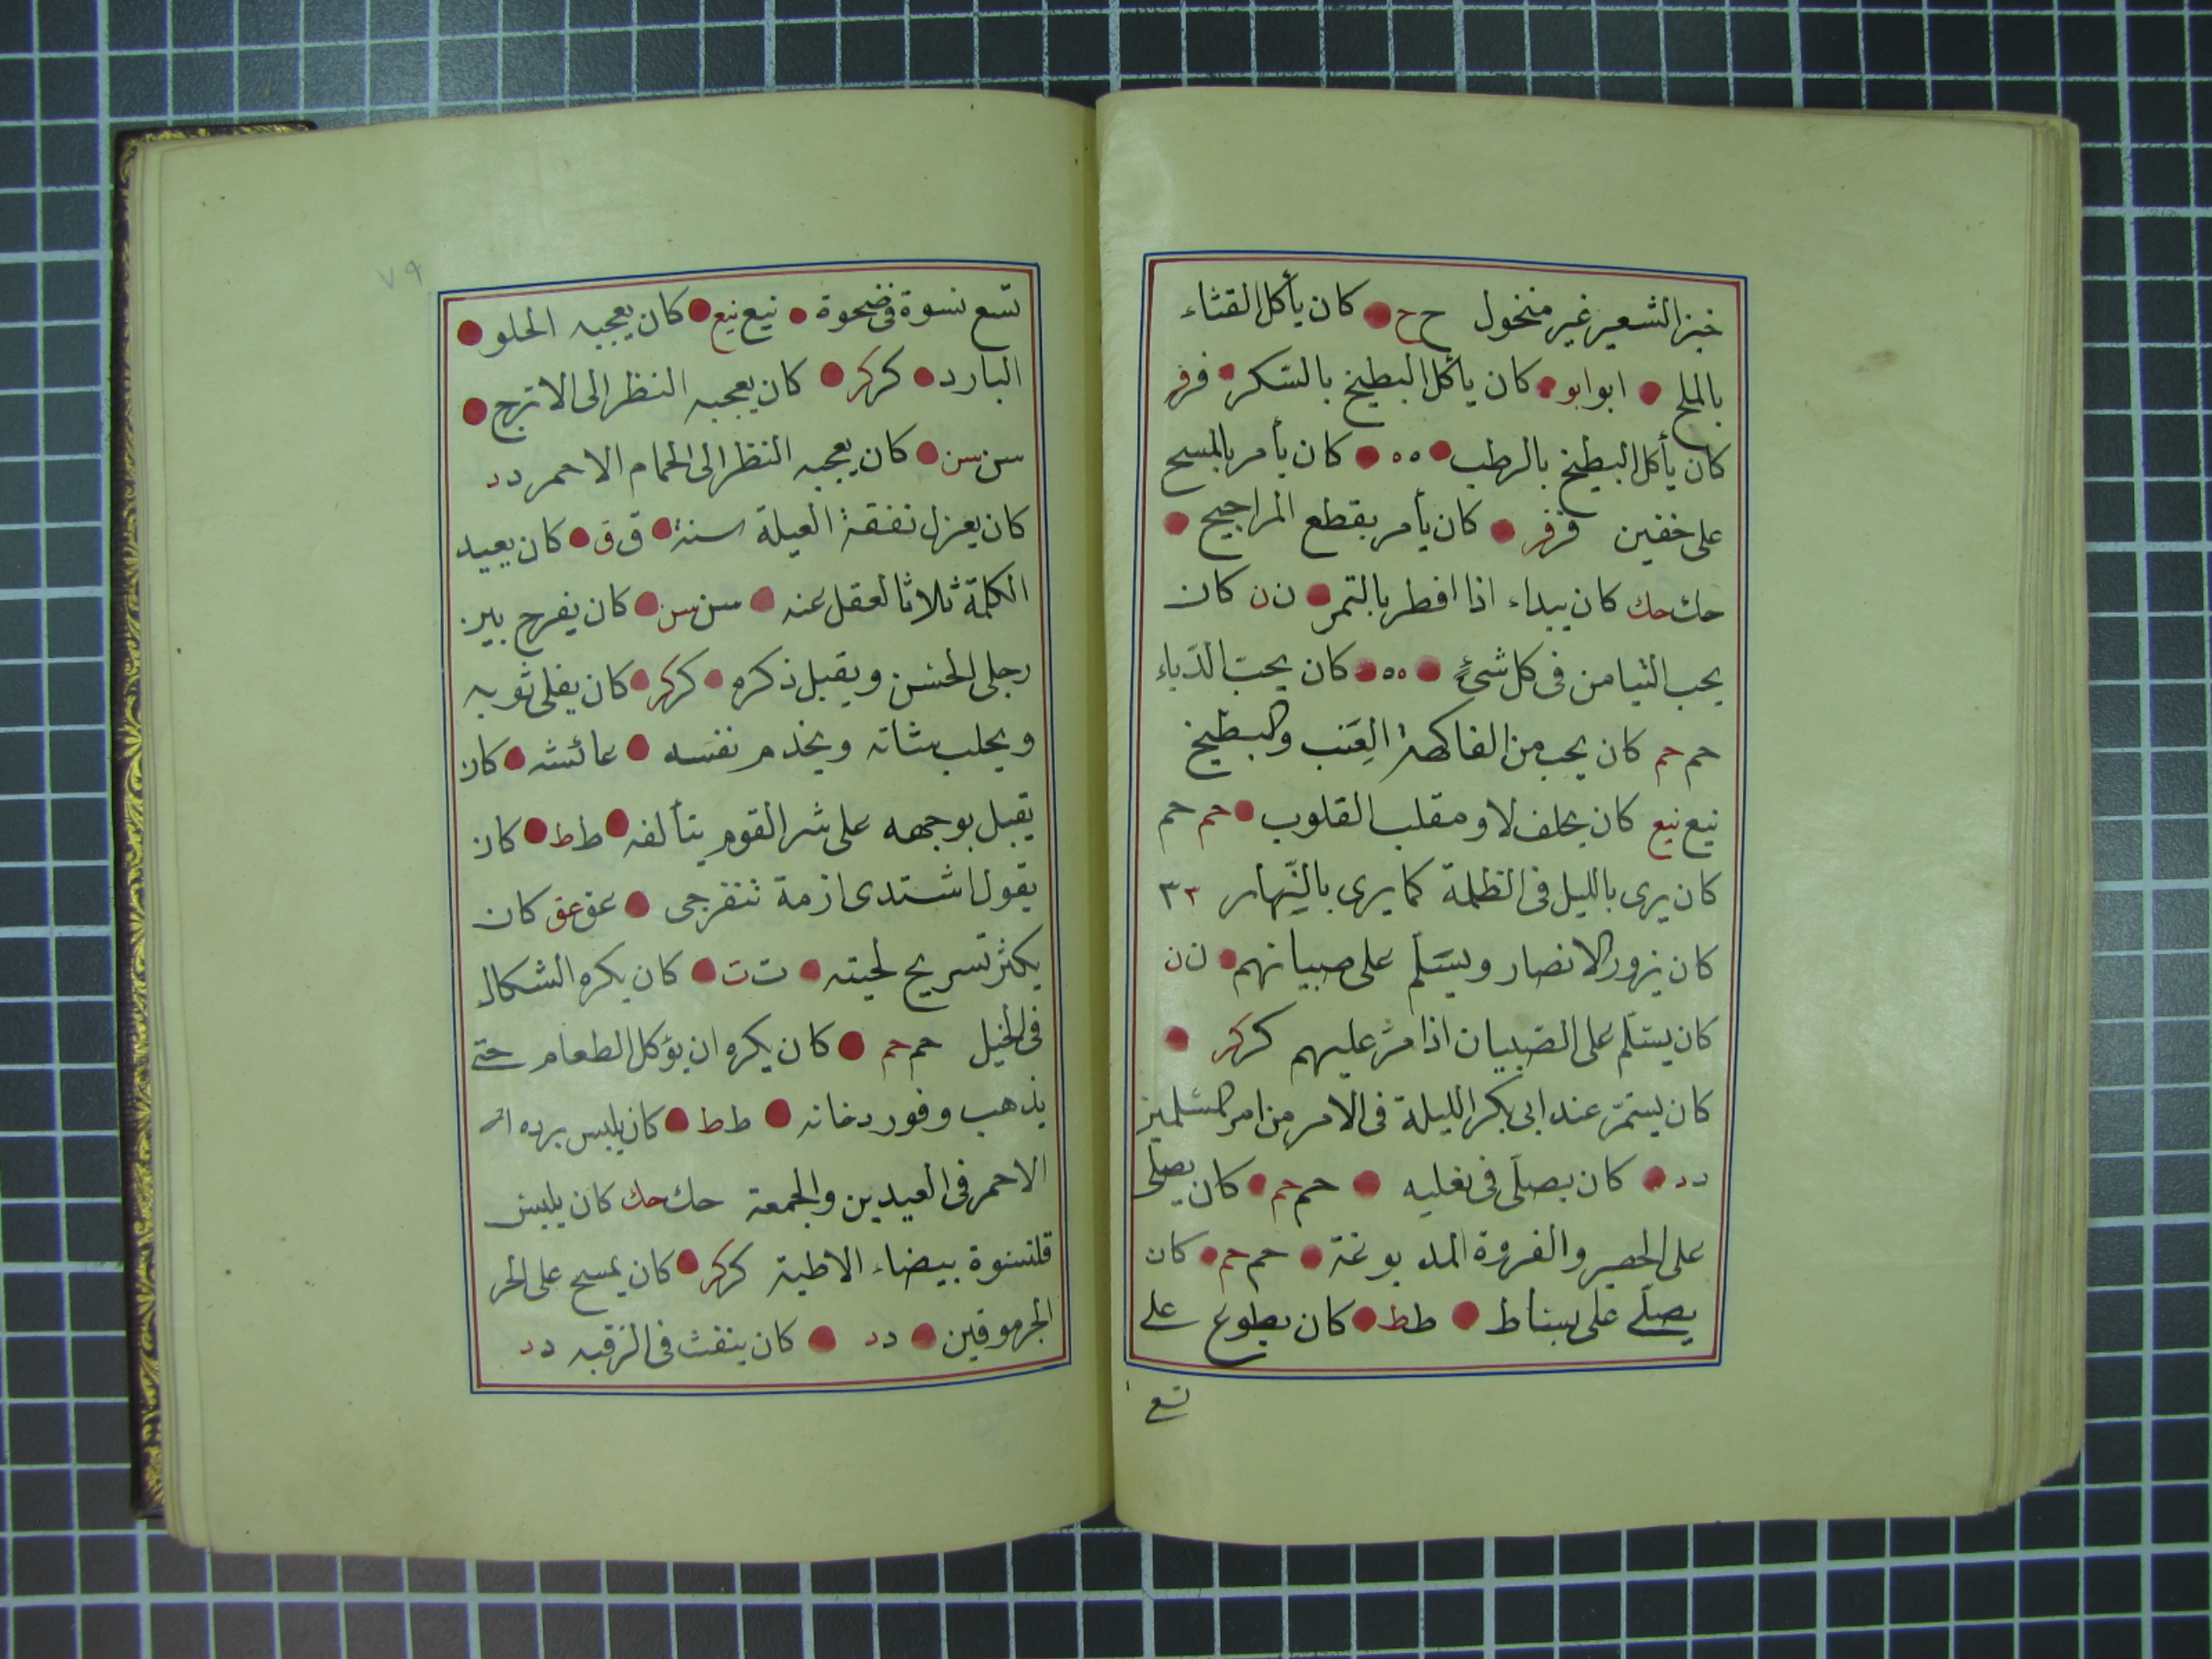 خبز الشعير غير منخول ح ح كان يأكل القثاء
بالملح ابو ابو كان يأكل البطيخ بالسكر فر فر
كان يأكل البطيخ بالرطب ٥٥ كان يأمر بالمسح
على خفين فر فر كان يأمر بقطع المراجيح
حك حك كان يبداء اذا افطر بالتمر ن ن كان
يحب التيامن فى كل شئ ٥٥ كان يحبّ الدّباء
حم حم كان يحب من الفاكهة العِنَب والبطيخ
نيع نيع كان يحلف لا ومقلب القلوب حم حم
كان يرى بالليل فى الظلمة كما يرى بالنّهار ٣٣
كان يزور الانصار ويسَلّم على صبيانهم ن ن
كان يسَلّم على الصّبيان اذا مرّ عليهم كر كر
كان يسَمرّ عند ابى بكر الليلة فى الامر من امر المسْلمين
د د كان يصلّى فى نعليه حم حم كان يصلّى
على الحصير والفروة المد بوغة حم حم كان
يصلّے على بساط ط ط كان يطوع على
تسع
٧٩
تسع نسوة فى ضحوة نيع نيع كان يعجبه الحلو
البارد كر كر كان يعجبه النظر الى الاترج
سن سن كان يعجبه النظر الى الحمام الاحمر د د
كان يعزل نفقة العيلة سنة ق ق كان يعيد
الكلمة ثلاثا لعقل عنه سن سن كان يفرج بين
رجلى الحسن ويقبل ذكره كر كر كان يفلى ثوبه
ويحلب شاته ويخدم نفسه عائشه كان
يقبل بوجهه على شر القوم يتألفه ط ط كان
يقول اشتدى ازمة تنفرجى عق عق كان
يكثر تسريح لحيته ت ت كان يكره الشكال
فى الخيل حم حم كان يكره ان يؤكل الطعام حتى
يذهب وفور دخانه ط ط كان يلبس برده
الاحمر فى العيدين والجمعة حك حك كان يلبس
قلنسوة بيضاء الاطية كر كر كان يمسح على الخر
الجرموقين د د كان ينفث فى الرقبه د د